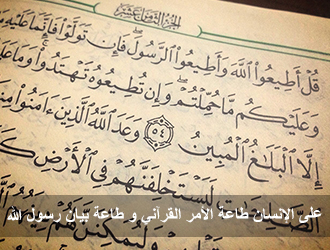 الجزء الثامن عشر
قُلْ أَطِيعُوا۟ ٱللَّهَ وَأَطِيعُوا۟ ٱلرَّسُولَ ۖ فَإِن تَوَلَّوْا۟ فَإِنَّمَا عَلَيْهِ
وَعَلَيْكُم مَّا حُمِّلْتُمْ ۖ وَإِن تُطِيعُوهُ تَهْتَدُوا۟ ۚ وَمَا عَلَى
إِلَّا ٱلْبَلَٰغُ ٱلْمُبِينُ ٥٤ وَعَدَ ٱللَّهُ ٱلَّذِينَ ءَامَنُوا۟ مِنكُمْ
ٱلصَّٰلِحَٰتِ لَيَسْتَخْلِفَنَّهُمْ فِى ٱلْأَرْضِ كَ
على الإنسان طاعة الأمر القرآني و طاعة بيان رسول الله
وَلَيُمَكِّنَنَّ لَهُمْ دِينَ